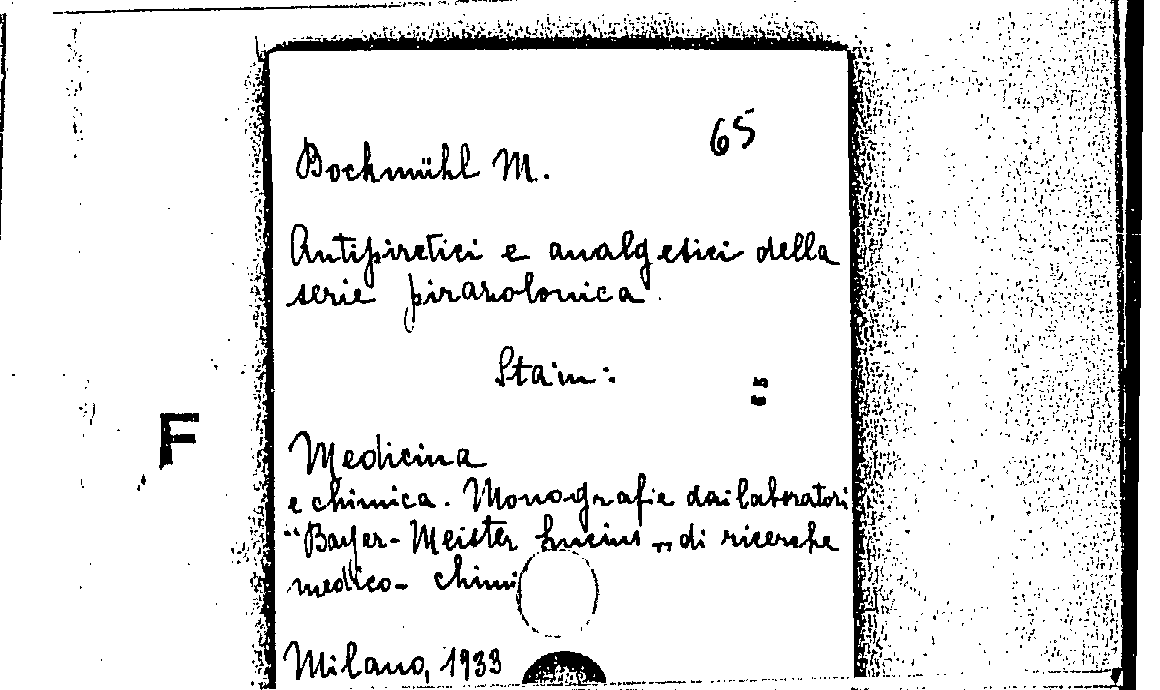 65
Bockmühl M.
Antipiretici e analgesici della
serie pirazolonica.
Sta in:
F
Medicina
e chimica. Monografie dai laboratori
"Bayer-Meister Lucius„ di ricerche
medico- chimi
Milano, 1933